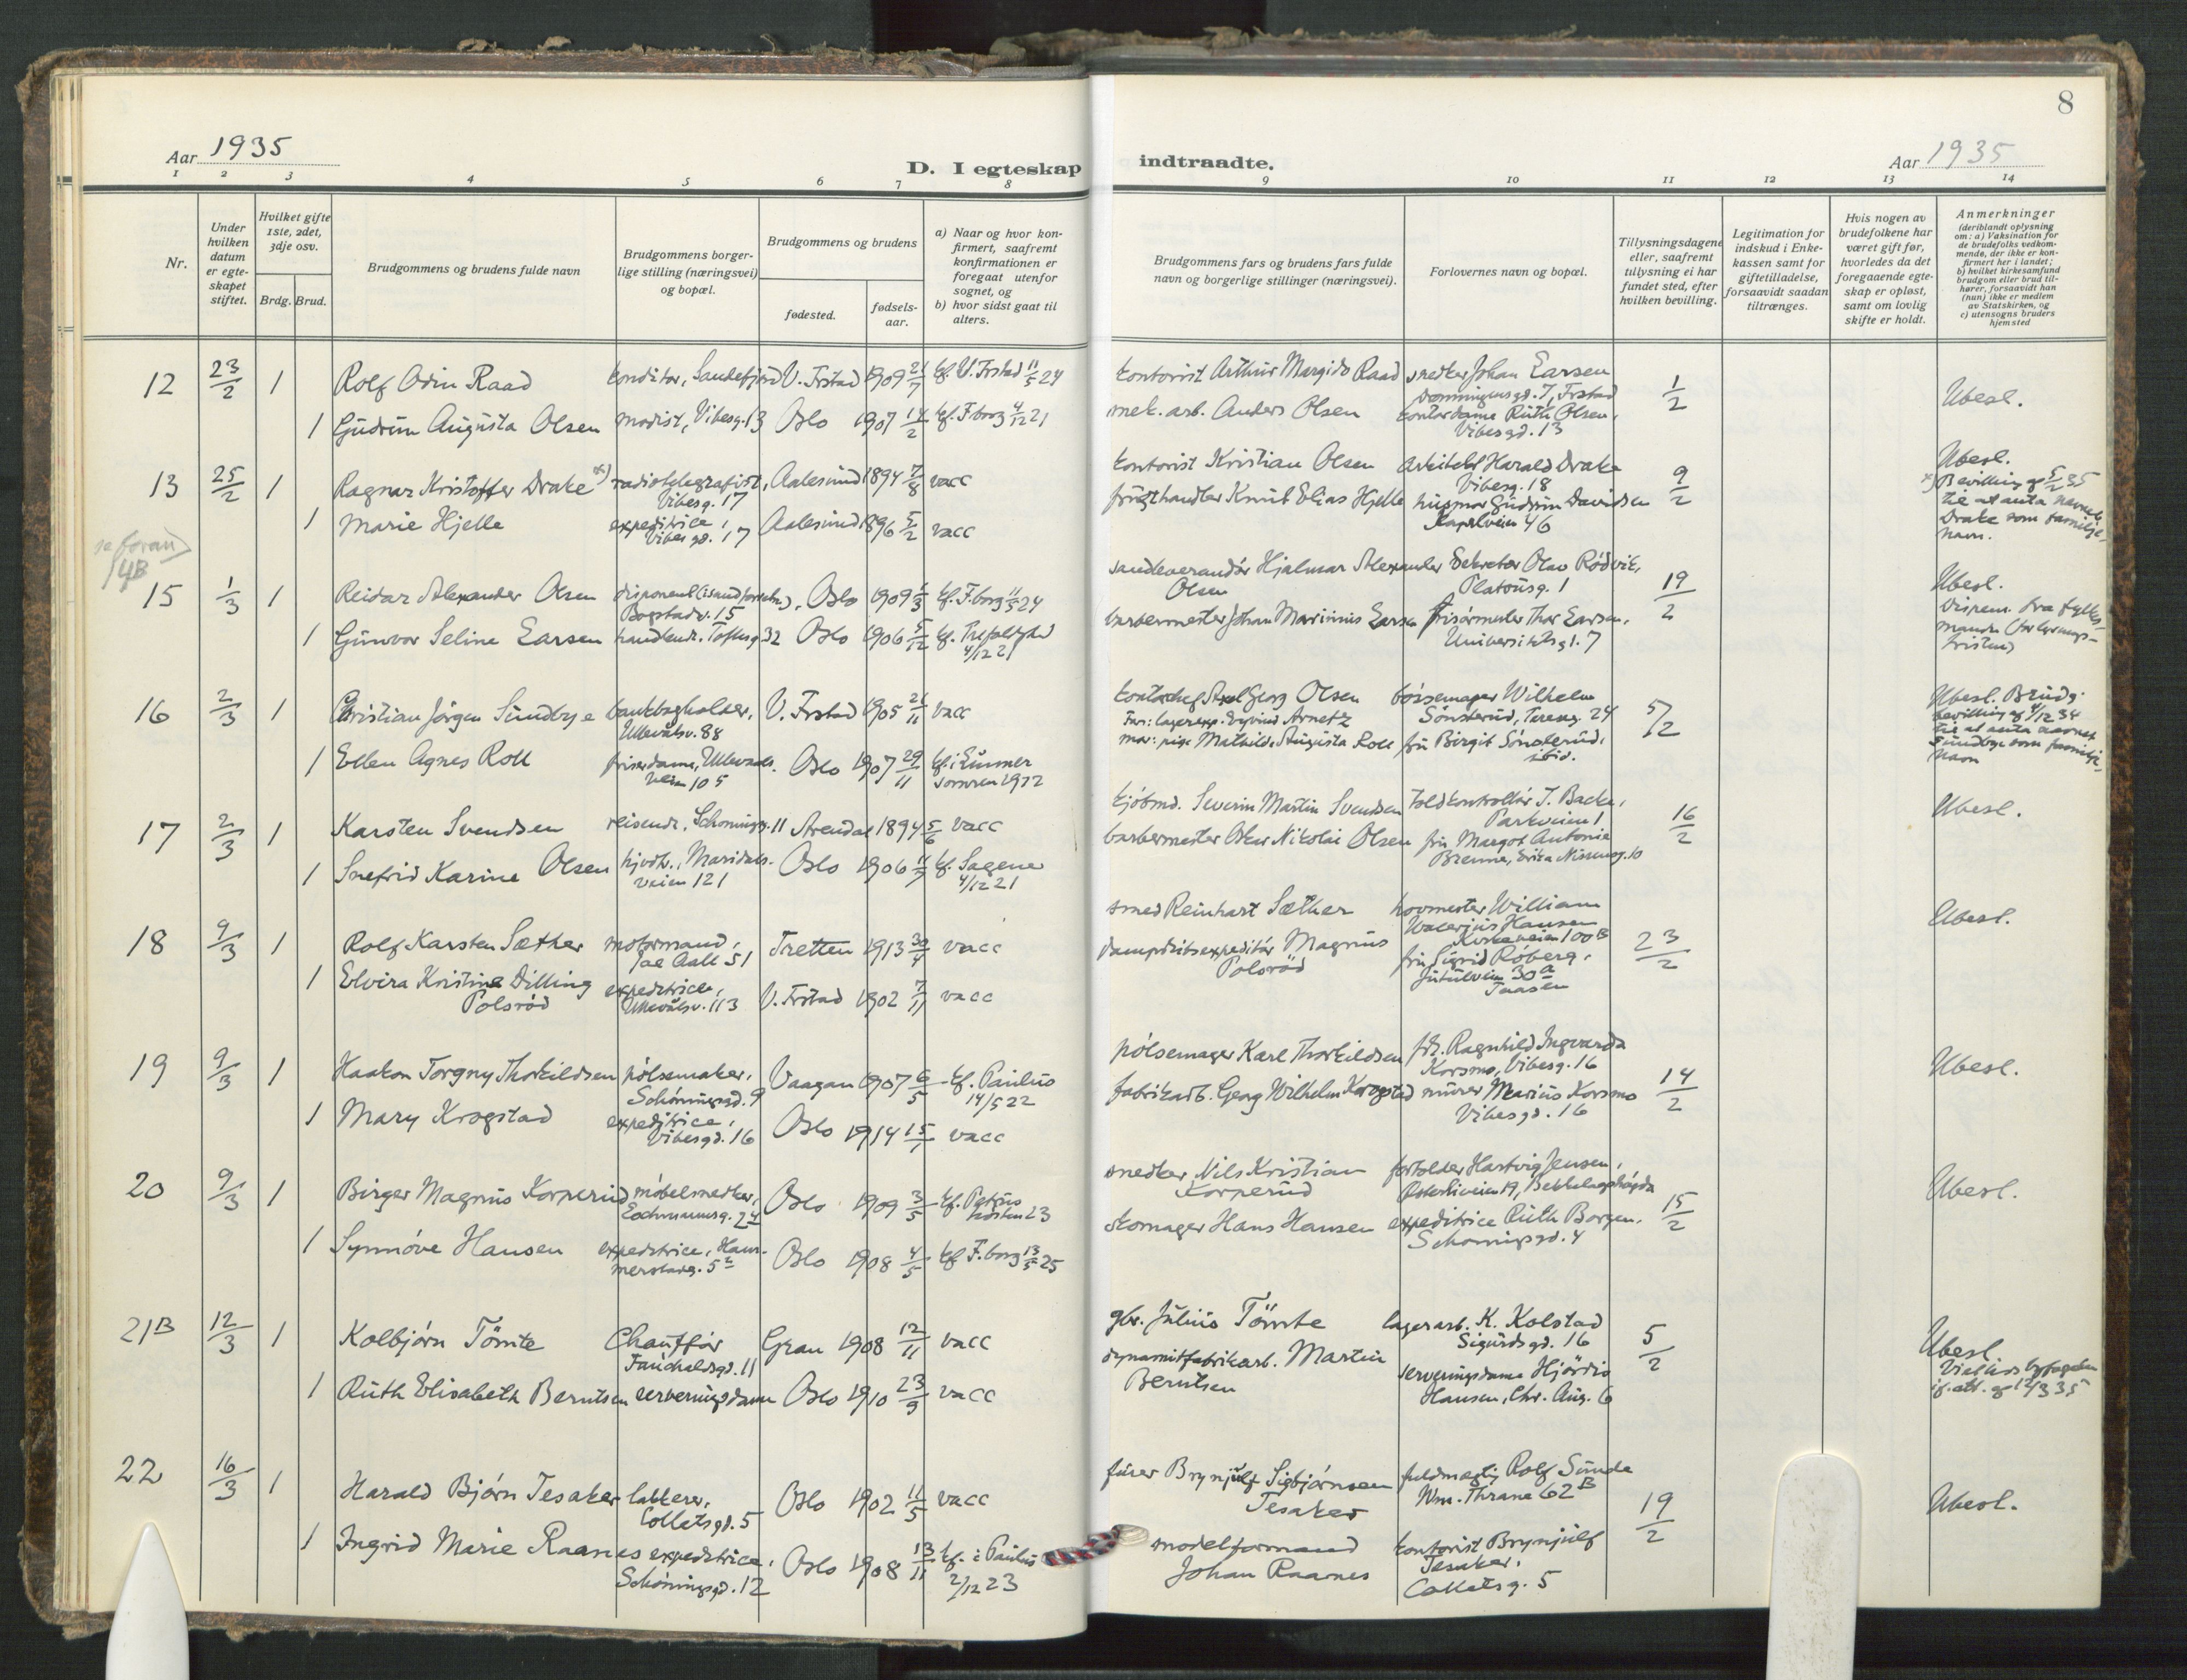 8
Aar 1935
D. I egteskap indtraadte.
Aar 1935
1 2 3 4 5 6 7 8 9 10 11 12 13 14
Nr.
Under hvilken datum er egteskapet stiftet.
Hvilket gifte 1ste, 2det, 3dje osv.
Brdg. Brud.
Brudgommens og brudens fulde navn
Brudgommens borgerlige stilling (næringsvei) og bopæl.
Brudgommens og brudens
fødested.
fødsels-aar.
a) Naar og hvor konfirmert, saafremt konfirmationen er foregaat utenfor sognet, og
b) hvor sidst gaat til alters.
Brudgommens fars og brudens fars fulde navn og borgerlige stillinger (næringsvei).
Forlovernes navn og bopæl.
Tillysningsdagene eller, saafremt tillysning ei har fundet sted, efter hvilken bevilling.
Legitimation for indskud i Enkekassen samt for giftetilladelse, forsaavidt saadan tiltrænges.
Hvis nogen av brudefolkene har været gift før, hvorledes da det foregaaende egteskap er opløst, samt om lovlig skifte er holdt.
Anmerkninger
(deriblandt oplysning om: a) Vaksination for de brudefolks vedkommende, der ikke er konfirmert her i landet; b) hvilket kirkesamfund brudgom eller brud tilhører, forsaavidt han (hun) ikke er medlem av Statskirken, og c) utensogns bruders hjemsted
12 23/2 1 Rolf Odin Raad konditor, Sandefjord V. Frstad 1909 21/7 kf. V. Frstad 11/5 24 kontorist Arthur Margido Raad snedker Johan Larsen 1/2 Ubesl.
Dronningensgd. 7, Frstad
1 Gudrun Augusta Olsen modist, Vibesg. 13 Oslo 1907 14/2 kf. F.borg 4/12 21 mek. arb. Anders Olsen kontordame Ruth Olsen,
Vibesgd. 13
13 25/2 1 Ragnar Kristoffer Drake x) radiotelegrafist, Aalesund 1894 7/8 vacc kontorist Kristian Olsen arkitekt Harald Drake 9/2 Ubesl.
Vibesg. 17 Vibesg. 18 x) Bevilling af 5/2 35
1 Marie Hjelle expeditrice, Aalesund 1896 5/2 vacc frugthandler Knut Elias Hjelle husmor Gudrun Davidsen til at anta navnet
Vibesgd. 17 Kapelveien 46 Drake som familie-
navn.
se foran
14B
15 1/3 1 Reidar Alexander Olsen disponent Oslo 1909 kf. F.borg 11/5 24 sandleverandør Hjalmar Alexander Sekretær Olav Rødvik, 19/2 Ubesl.
Bogstadv. 15 Olsen Platousg. 1 Dispens. fra fylkes-
1 Gunvor Seline Larsen handlende. Toftesg. 32 Oslo 1906 5/12 kf. Trefoldighed barbermester Johan Marinius Larsen frisørmester Thor Larsen, manden
4/12 21 Universitetsgt. 7
16 2/3 1 Christian Jørgen Sundbye bankbogholder, V. Frstad 1905 21/11 vacc kontorchef Axel Georg Olsen børsemager Wilhelm 5/2 Ubesl. Brudg.
Ullevålsv. 88 Far: lagerexp. Eyvind Arnetz Sønsterud, Teresesg. 24 bevilling af 4/12 34
mor: pige Mathilde Augusta Roll fru Birgit Sønsterud, til at anta navnet
1 Ellen Agnes Roll frisørdame, Ullevaals- Oslo 1907 29/11 kf. i Lunner ibid. Sundbye som familie-
veien 105 sommeren 1922 navn
17 2/3 1 Karsten Svendsen reisende, Schøningsg. 11 Arendal 1894 5/6 vacc kjøbmd. Severin Martin Svendsen Toldkontrollør J. Backe, 16/2 Ubesl.
Parkveien 1
1 Snefrid Karine Olsen Maridals- Oslo 1906 kf. Sagene barbermester Oskar Nikolai Olsen fru Margot Antonie
veien 121 4/12 21 Brenne, Erika Nissensg. 10
18 9/3 1 Rolf Karsten Sæther motormand, Tretten 1913 vacc smed Reinhart Sæther hovmester William 23/2 Ubesl.
Jac Aall 51 Valerius Hansen
Kirkeveien 100B
1 Elvira Kristine Dilling expeditrice, V. Frstad 1902 7/11 vacc dampskibsexpeditør Magnus fru Sigrid Røberg,
Polsrød Ullevålsv. 113 Polsrød Jutulveien 30a
Taasen
19 9/3 1 Haakon Torgny Thorkildsen pølsemaker, Vaagan 1907 6/5 kf. Paulus pølsemager Karl Thorkildsen frk. Ragnhild Ingvarda 14/2 Ubesl.
Schøningsgd. 9 14/5 22 Korsmo, Vibesg. 16
1 Mary Krogstad expeditrice, Oslo 1914 15/7 vacc fabrikarb. Georg Wilhelm Krogstad murer Marius Korsmo
Vibesgd. 16 Vibesgd. 16
20 9/3 1 Birger Magnus Korperud møbelsnedker, Oslo 1909 3/5 kf. Petrus snedker Nils Kristian forvalter Hartvig Jensen, 15/2 Ubesl.
Lochmannsg. 24 høsten 23 Korperud Østerliveien 19, Bekkelagshøgda
1 Synnøve Hansen expeditrice, Ham- Oslo 1908 4/5 kf F.borg 13/5 25 skomager Hans Hansen expeditrice Ruth Borgen,
merstadsg. 5 Schøningsgd. 4
21B 12/3 1 Kolbjørn Tömte Chauffør Gran 1908 12/11 vacc gbr. Julius Tömte lagerarb. K. Kolstad 5/2 Ubesl
Fauchaldsgd. 11 Sigurdsgd. 16 Viet hos byfogden
1 Ruth Elisabeth Berntsen serveringsdame Oslo 1910 23/9 vacc dynamitfabrikarb. Martin serveringsdame Hjørdis if. att. af 12/3 35
Berntsen Hansen, Chr. Aug. 6
22 16/3 1 Harald Bjørn Tesaker lakkerer, Oslo 1902 11/5 vacc furer Brynjulf Sigbjørnsen fuldmægtig Rolf Sunde 19/2 Ubesl.
Colletsgd. 5 Tesaker Wm. Thrane 62B
1 Ingrid Marie Raanes expeditrice, Oslo 1908 13/11 kf. i Paulus modelformand kontorist Brynjulf
Schøningsgd. 12 2/12 23 Johan Raanes Tesaker,
Colletsg. 5